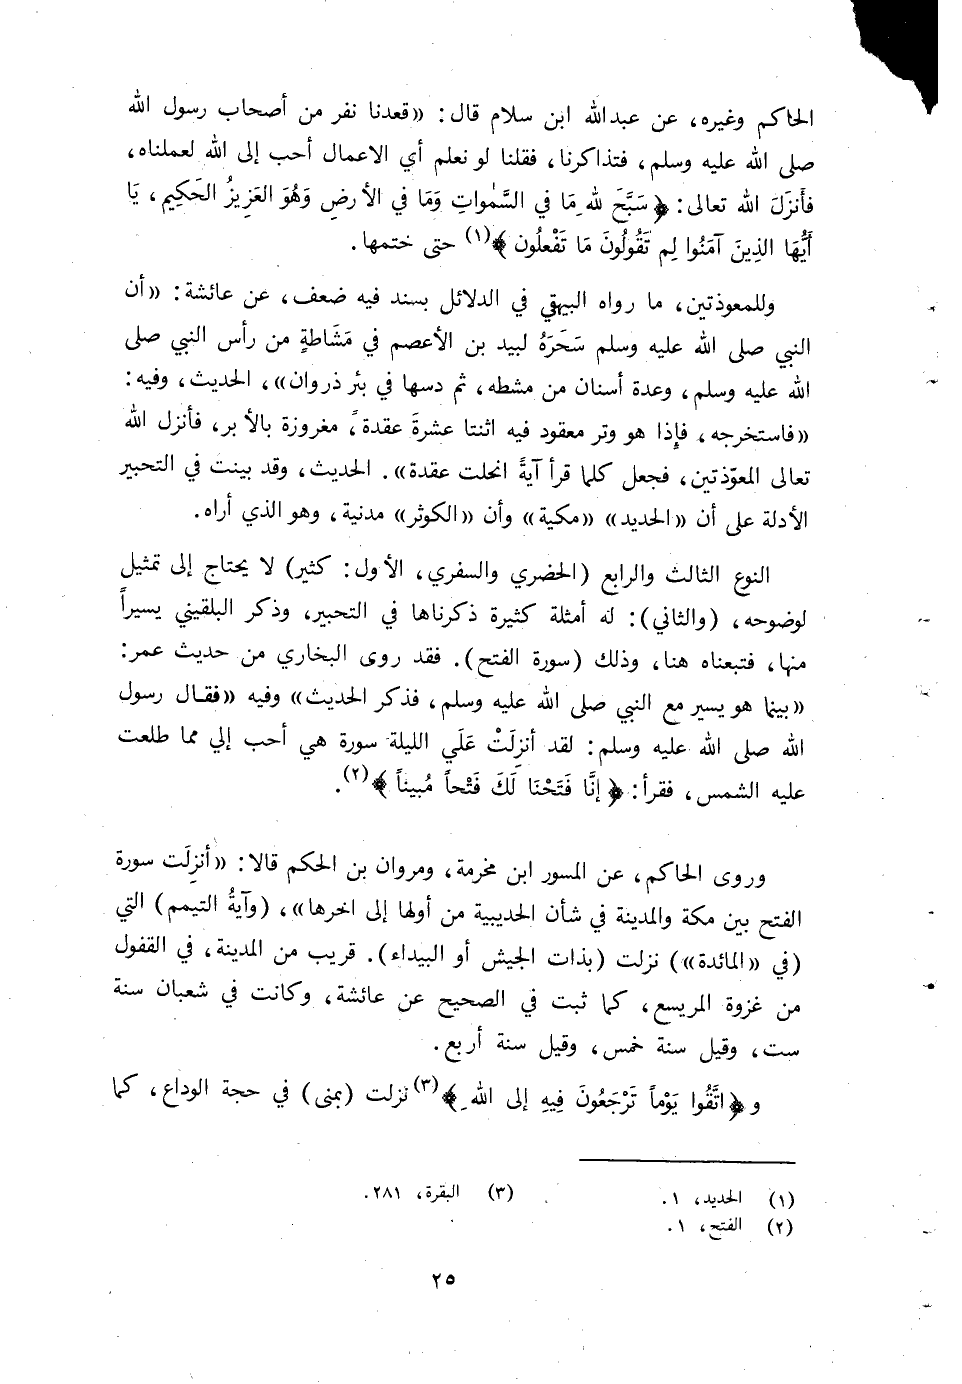 الحاكم وغيره، عن عبدالله ابن سلام قال: «قعدنا نفر من أصحاب رسول الله
صلى الله عليه وسلم، فتذاكرنا، فقلنا لو نعلم أي الاعمال أحب إلى الله لعملناه،
فأَنزَلَ الله تعالى: ﴿ سَبَّحَ للهِ مَا في السَّمٰواتِ وَمَا في الأرضِ وَهُوَ العَزِيزُ الحَكِيم، يَا
أَيُّهَا الذِينَ آمَنُوا لِم تَقُولُونَ مَا تَفْعلُون ﴾(١) حتى ختمها.
وللمعوذتين، ما رواه البيهقي في الدلائل بسند فيه ضعف، عن عائشة: «أن
النبي صلى الله عليه وسلم سَحَرَهُ لبيد بن الأعصم في مَشَاطةٍ من رأس النبي صلى
الله عليه وسلم، وعدة أسنان من مشطه، ثم دسها في بئر ذروان»، الحديث، وفيه:
«فاستخرجه، فإِذا هو وتر معقود فيه اثنتا عشرةَ عقدةً، مغروزة بالأبر، فأنزل الله
تعالى المعوّذتين، فجعل كلما قرأ آيةً انحلت عقدة». الحديث، وقد بينت في التحبير
الأدلة على أن «الحديد» «مكية» وأن «الكوثر» مدنية، وهو الذي أراه.
النوع الثالث والرابع (الحضري والسفري، الأول: كثير) لا يحتاج إلى تمثيل
لوضوحه، (والثاني): له أمثلة كثيرة ذكرناها في التحبير، وذكر البلقيني يسيراً
منها، فتبعناه هنا، وذلك (سورة الفتح). فقد روى البخاري من حديث عمر:
«بينما هو يسير مع النبي صلى الله عليه وسلم، فذكر الحديث» وفيه «فقال رسول
الله صلى الله عليه وسلم: لقد أنزِلَتْ عَلَي الليلة سورة هي أحب إلي مما طلعت
عليه الشمس، فقرأ: ﴿ إنَّا فَتَحْنَا لَكَ فَتْحاً مُبيناً ﴾(٢).
وروى الحاكم، عن المسور ابن مخرمة، ومروان بن الحكم قالا: «أنزِلَت سورة
الفتح بين مكة والمدينة في شأن الحديبية من أولها إلى اخرها»، (وآيةُ التيمم) التي
(في «المائدة») نزلت (بذات الجيش أو البيداء). قريب من المدينة، في القفول
من غزوة المريسع، كما ثبت في الصحيح عن عائشة، وكانت في شعبان سنة
ست، وقيل سنة خمس، وقيل سنة أربع.
و﴿ اتَّقُوا يَوْماً تَرْجَعُونَ فِيهِ إلى اللهِ ﴾(٣) نزلت (بمنى) في حجة الوداع، كما
(١) الحديد، ١.
(٢) الفتح، ١.
(٣) البقرة، ٢٨١.
٢٥